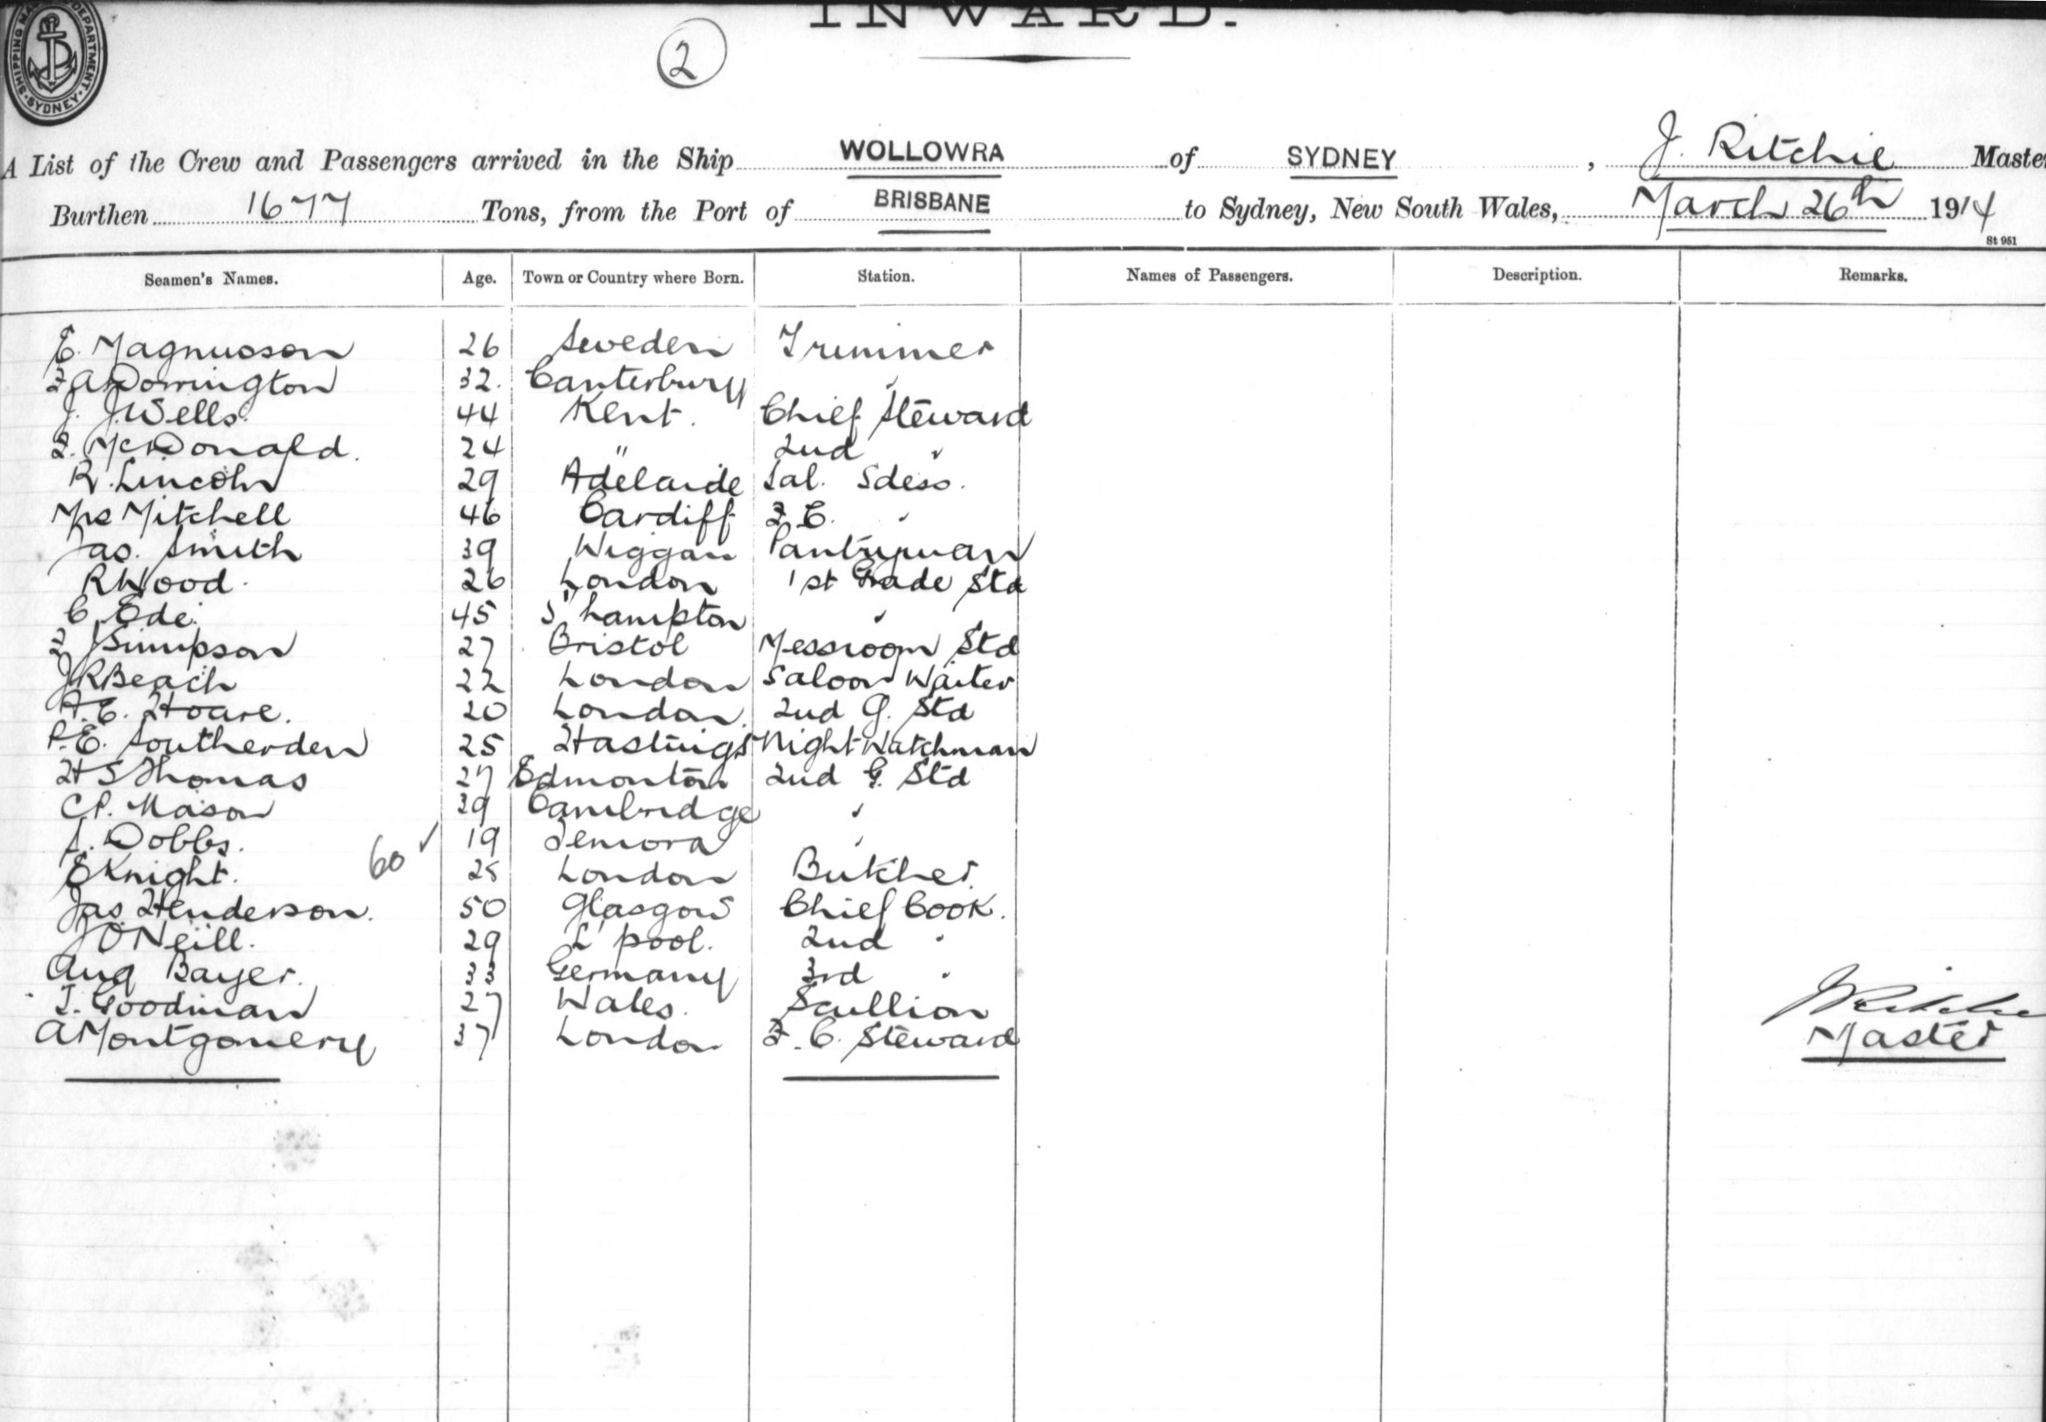 INWARD.
2
SHIPPING MASTER'S DEPARTMENT. SYDNEY.
A List of the Crew and Passengers arrived in the Ship WOLLOWRA of SYDNEY, J. Ritchie Maste
Burthen 1677 Tons, from the Port of BRISBANE to Sydney, New South Wales, March 26th 1914
St 951
Seamen's Names. Age. Town or Country where Born. Station. Names of Passengers. Description. Remarks.
E. Magnusson 26 Sweden Trimmer
F A Dorrington 32. Canterbury "
J. J. Wells. 44 Kent. Chief Steward
F. McDonald. 24 " 2nd "
R. Lincoln 29 Adelaide Sal. Sdess.
Mrs Mitchell 46 Cardiff F. C. "
Jas. Smith 39 Wiggan Pantryman
R Wood. 26 London 1st Grade Std
C. Ede. 45 S'hampton "
F J Simpson 27 Bristol Messroom Std
J R Beach 22 London Saloon Waiter
A. E. Hoare. 20 London. 2nd G. Std
P. E. Southerden 25 Hastings Night Watchman
H S Thomas 27 Edmonton 2nd G. Std
C P. Mason 39 Cambridge "
A. Dobbs. 19 Temora "
60 ✓
E Knight. 25 London Butcher
Jas. Henderson. 50 Glasgow Chief Cook.
J O'Neill. 29 L'pool. 2nd "
Aug Bayer. 33 Germany 3rd "
T. Goodman 27 Wales. Scullion
A Montgomery 37 London F. C. Steward
J Ritchie
Master